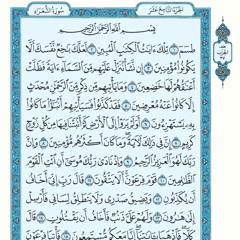 الجزء التاسع عشر
سورة الشعراء
بسم الله الرحمن الرحيم
طسٓمٓ ۝١ تِلْكَ ءَايَٰتُ ٱلْكِتَٰبِ ٱلْمُبِينِ ۝٢ لَعَلَّكَ بَٰخِعٌ نَّفْسَكَ أَلَّا
يَكُونُوا۟ مُؤْمِنِينَ ۝٣ إِن نَّشَأْ نُنَزِّلْ عَلَيْهِم مِّنَ ٱلسَّمَآءِ ءَايَةً فَظَلَّتْ
أَعْنَٰقُهُمْ لَهَا خَٰضِعِينَ ۝٤ وَمَا يَأْتِيهِم مِّن ذِكْرٍ مِّنَ ٱلرَّحْمَٰنِ مُحْدَثٍ
إِلَّا كَانُوا۟ عَنْهُ مُعْرِضِينَ ۝٥ فَقَدْ كَذَّبُوا۟ فَسَيَأْتِيهِمْ أَنۢبَٰٓؤُا۟ مَا كَانُوا۟
بِهِۦ يَسْتَهْزِءُونَ ۝٦ أَوَلَمْ يَرَوْا۟ إِلَى ٱلْأَرْضِ كَمْ أَنۢبَتْنَا فِيهَا مِن كُلِّ زَوْجٍ
كَرِيمٍ ۝٧ إِنَّ فِى ذَٰلِكَ لَءَايَةً وَمَا كَانَ أَكْثَرُهُم مُّؤْمِنِينَ ۝٨ وَإِنَّ
رَبَّكَ لَهُوَ ٱلْعَزِيزُ ٱلرَّحِيمُ ۝٩ وَإِذْ نَادَىٰ رَبُّكَ مُوسَىٰٓ أَنِ ٱئْتِ ٱلْقَوْمَ
ٱلظَّٰلِمِينَ ۝١٠ قَوْمَ فِرْعَوْنَ أَلَا يَتَّقُونَ ۝١١ قَالَ رَبِّ إِنِّىٓ أَخَافُ
أَن يُكَذِّبُونِ ۝١٢ وَيَضِيقُ صَدْرِى وَلَا يَنطَلِقُ لِسَانِى فَأَرْسِلْ
إِلَىٰ هَٰرُونَ ۝١٣ وَلَهُمْ عَلَىَّ ذَنۢبٌ فَأَخَافُ أَن يَقْتُلُونِ ۝١٤ قَالَ